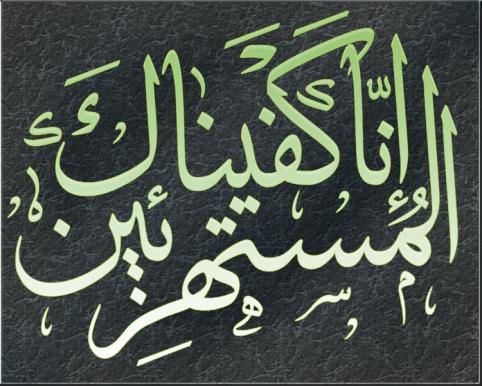 انّا كفيناك
المُستهزئين